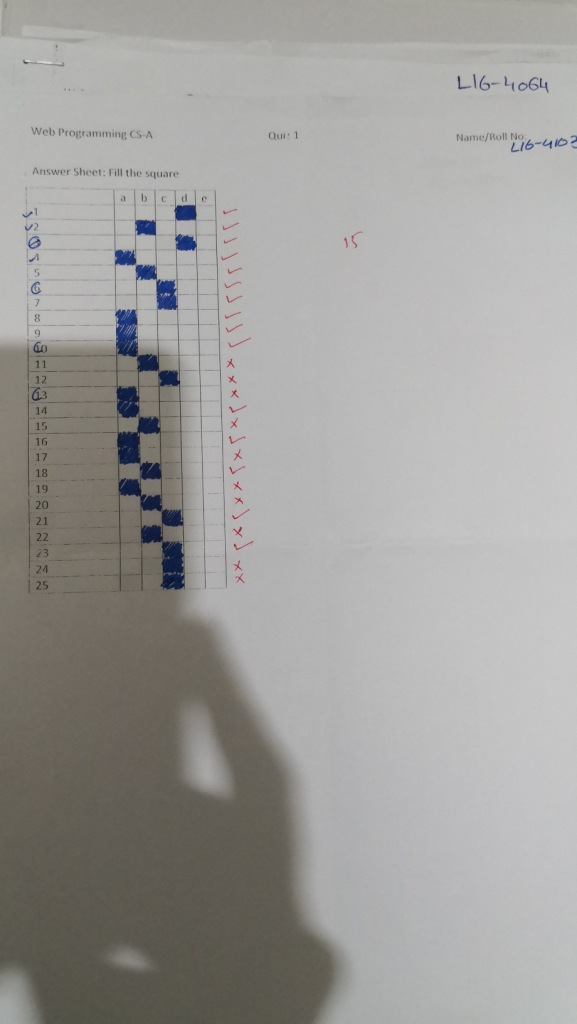 L16-4064
Web Programming CS-A Quiz 1 Name/Roll No:
L16-4103
Answer Sheet: Fill the square
a b c d e
1 ✓
2 ✓
3 ✓ 15
4 ✓
5 ✓
6 ✓
7 ✓
8 ✓
9 ✓
10 ✓
11 ×
12 ×
13 ×
14 ✓
15 ×
16 ✓
17 ×
18 ✓
19 ×
20 ×
21 ✓
22 ×
23 ✓
24 ×
25 ×